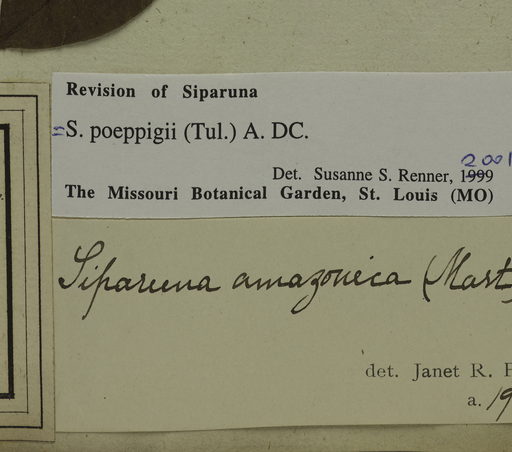 Revision of Siparuna
=S. poeppigii (Tul.) A. DC.
2001
Det. Susanne S. Renner, 1999
The Missouri Botanical Garden, St. Louis (MO)
Siparuna amazonica (Mart
det. Janet R.
a. 19